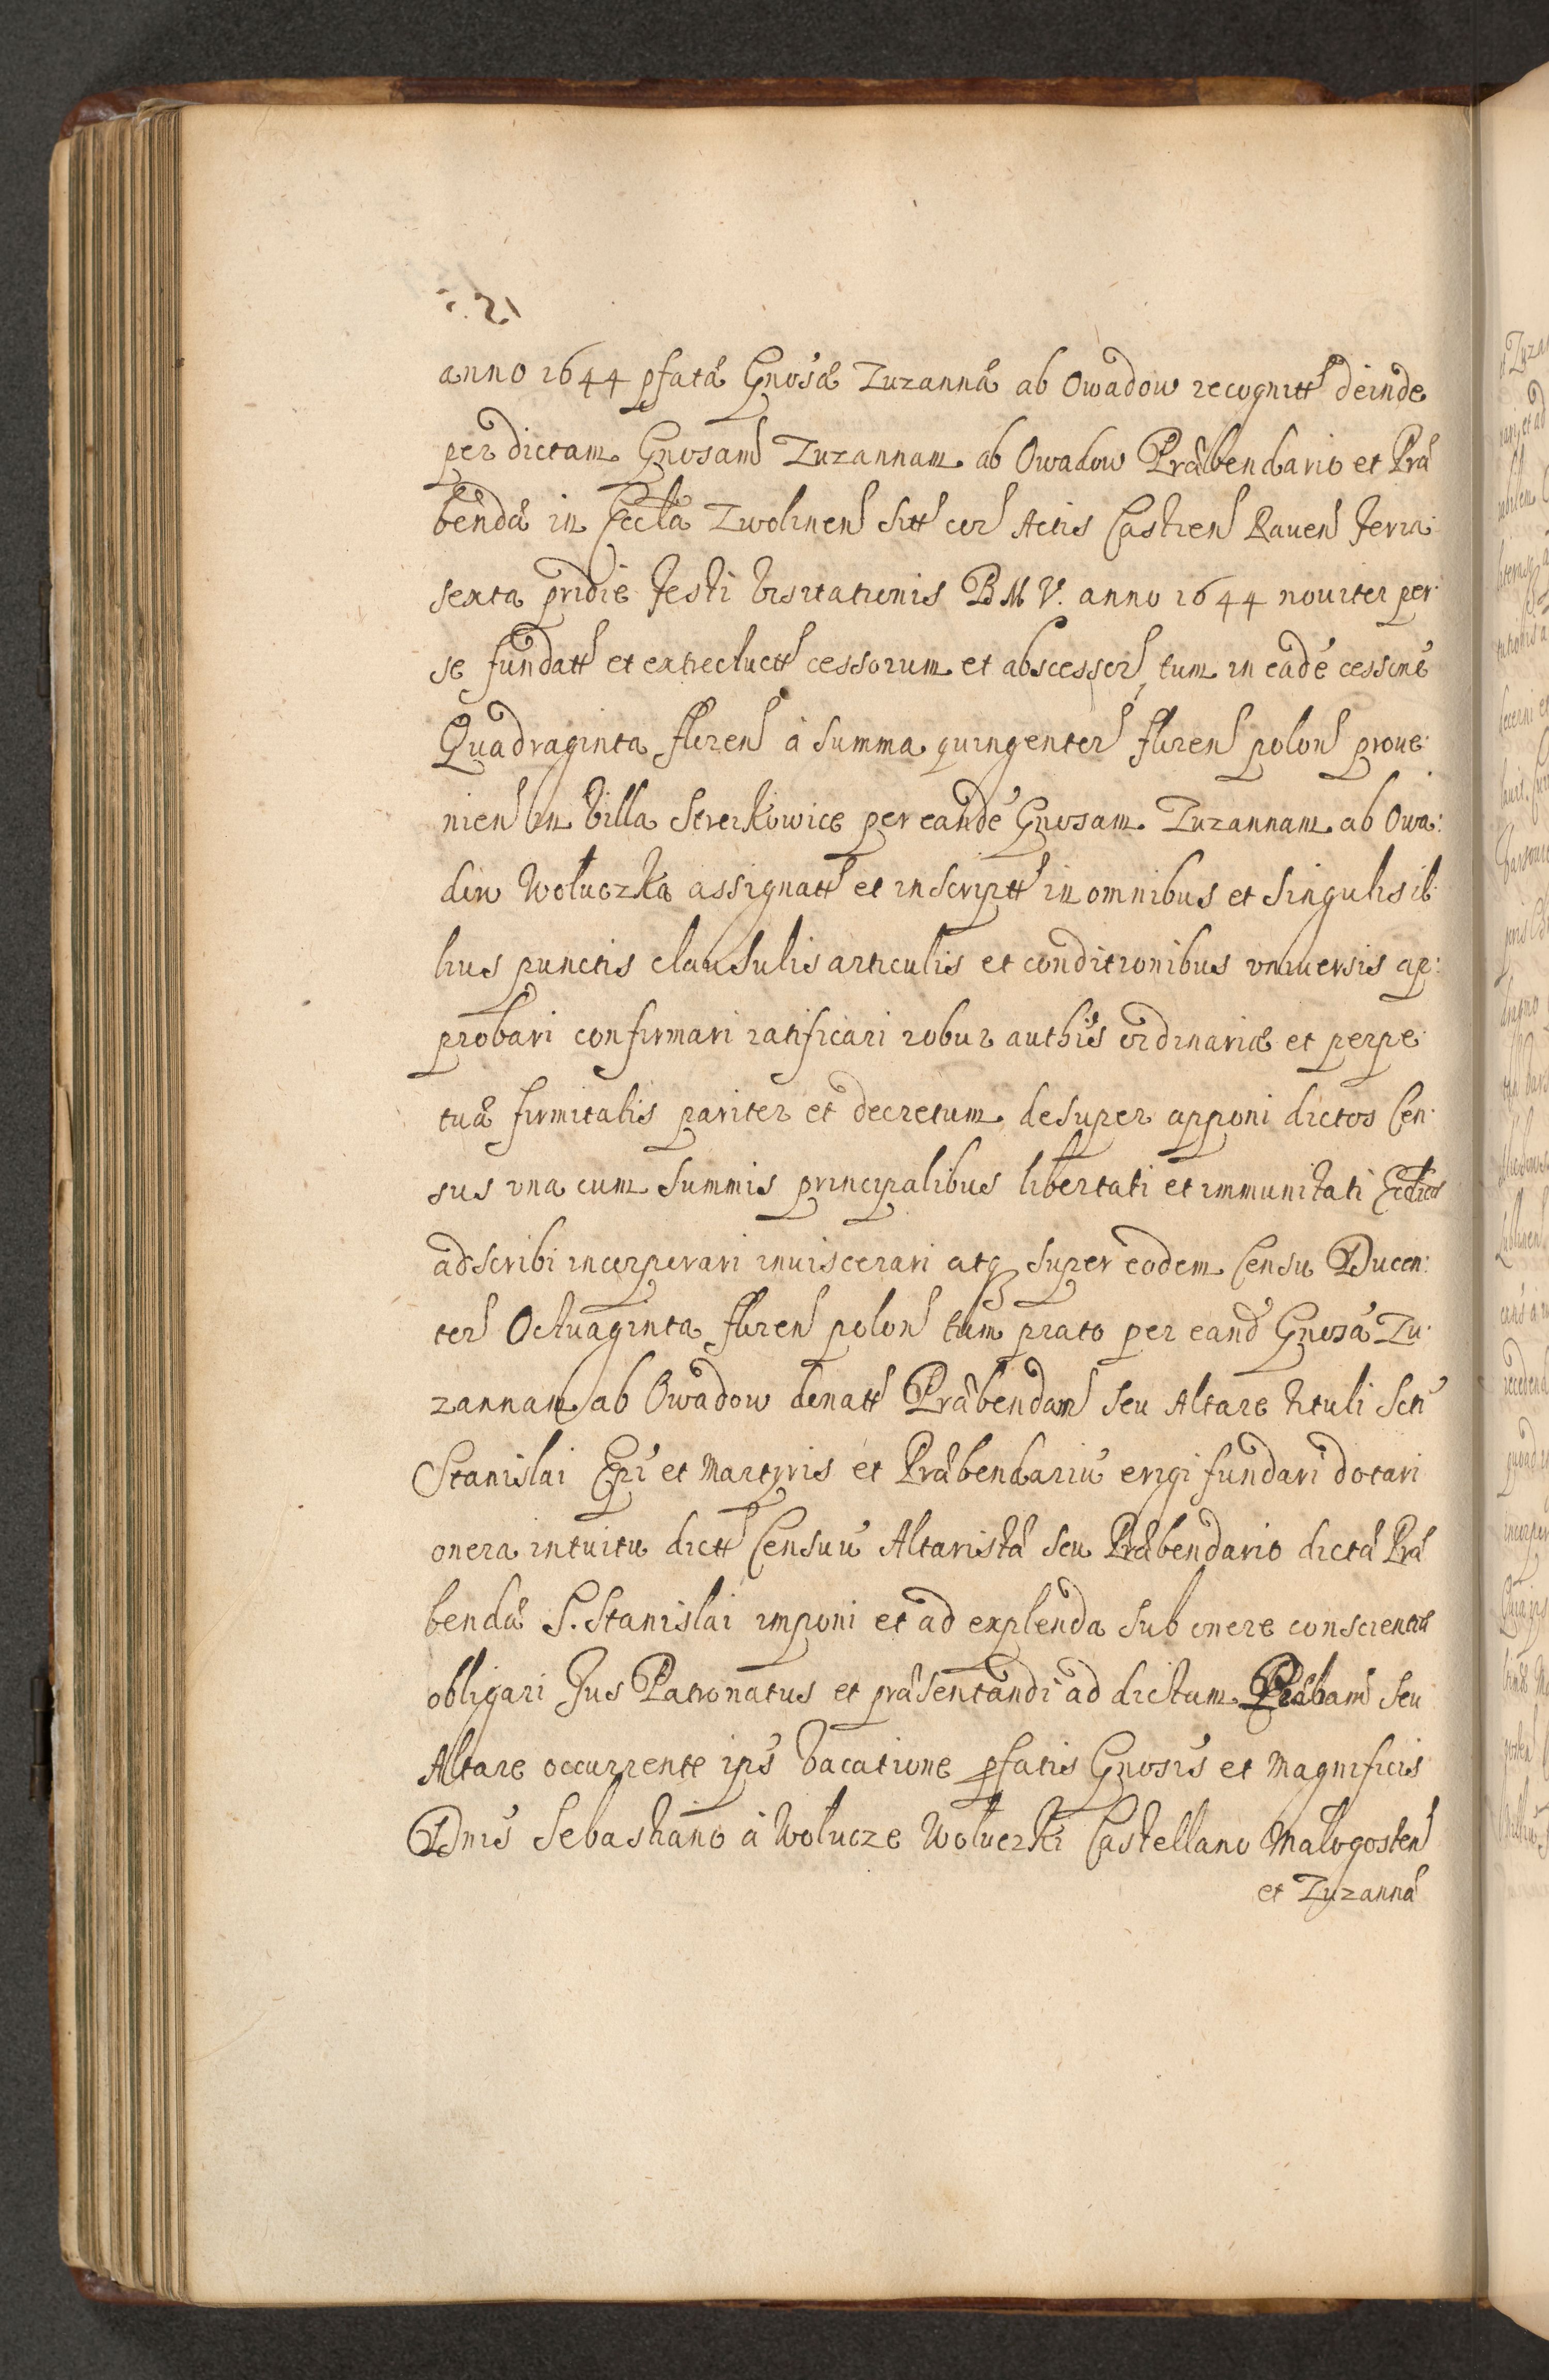 anno 1644 pfatæ Gnosæ Zuzannæ ab Owadow recognitt deinde
per dictam Gnosam Zuzannam ab Owadow Præbendario et Præ
bendæ in Eccla Zwolinen sitt cor Actis Castren Raven feria
sexta pridie festi Visitationis B M V. anno 1644 noviter per
se fundatt et cessorum et abscessor, tum in eadē cessione
Quadraginta floren à summa quingentor floren polon prove:
nien in Villa Strerkowice per eandē Gnosam Zuzannam ab Owa:
dow Wołuczka assignatt et inscriptt in omnibus et singulis il
lius punctis clausulis articulis et conditionibus universis ap:
probari confirmari ratificari robur authīs ordinariæ et perpe
tuæ firmitatis pariter et decretum desuper apponi dictos Cen:
sus una cum summis principalibus libertati et immunitati Ecclicæ
adscribi incorporari inviscerari atq super eodem Censu Ducen:
tor Octuaginta floren polon tum prato per eand Gnosā Zu:
zannam ab Owadow donatt Præbendam seu Altare tituli Scti
Stanislai Epī et Martyris et Præbendariū erigi fundari dotari
onera intuitu dictt Censuū Altaristæ seu Præbendario dictæ Præ
bendæ S. Stanislai imponi et ad explenda sub onere conscientiæ
obligari Jus Patronatus et præsentandi ad dictum Præbam seu
Altare occurrente ips̄ vacatione pfatis Gnosis et Magnificis
Dnis Sebastiano à Wolucze Wołuczki Castellano Malogosten
et Zuzannæ